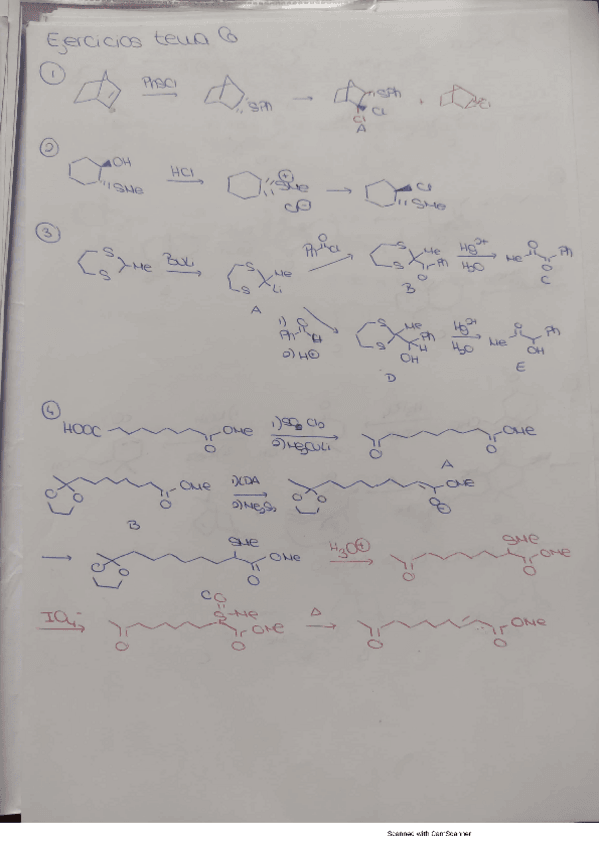 Ejercicios tema 6
1
PhSCl
SPh
SPh
Cl
Cl
A
2
OH
SMe
HCl
SMe
Cl
Cl
SMe
3
S
S
Me
BuLi
S
S
Me
Li
A
Ph O Cl
S
S
Me
Ph
O
B
Hg2+
H2O
Me O O Ph
C
1) Ph O H
2) H+
S
S
Me
Ph
H
OH
D
Hg2+
H2O
Me O Ph
OH
E
4
HOOC
OMe
O
2) Me2CuLi
O
OMe
O
A
O
O
OMe
O
B
1) LDA
2) Me2S2
O
O
OMe
O
SMe
O
O
OMe
O
H3O+
SMe
O
OMe
O
IO4-
O
S-Me
O
OMe
O
Δ
O
OMe
O
Scanned with CamScanner